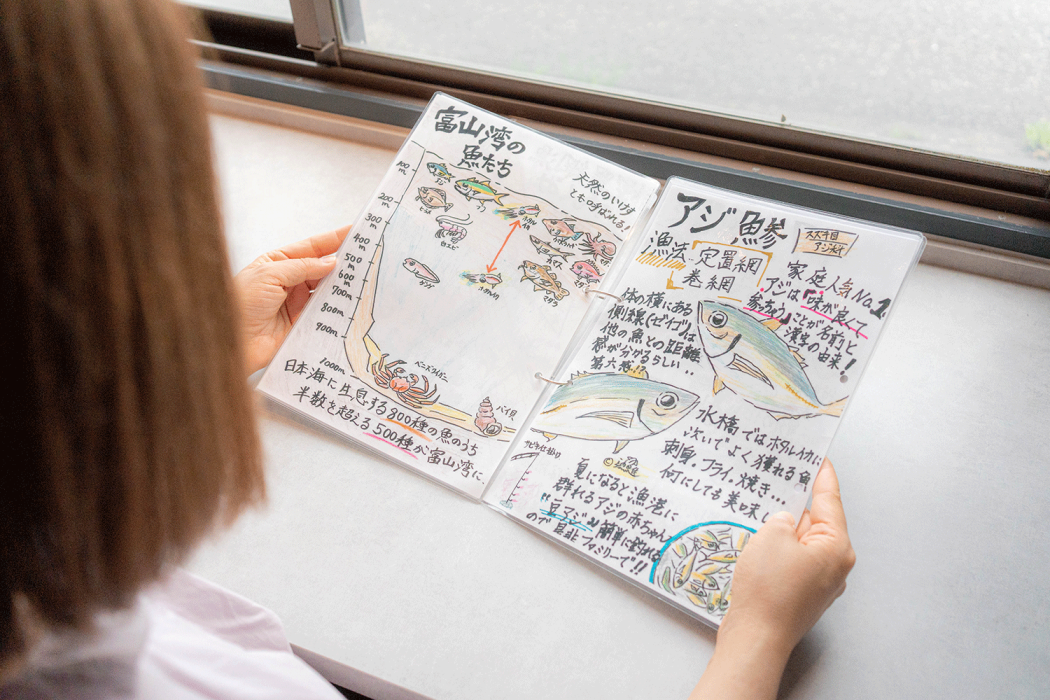 富山湾の
魚たち
天然のいけす
とも呼ばれる!
100m
200m
300m
400m
500m
600m
700m
800m
900m
1000m
アジ
ブリ
ホタルイカ
白エビ
ベニズワイガニ
バイ貝
日本海に生息する800種の魚のうち
半数を超える500種が富山湾に
アジ 鯵
漁法
定置網
巻網
家庭人気No.1
アジは「味が良くて
参っちゃう」ことが名前と
漢字の由来!
体の横にある
側線(ゼイゴ)は
他の魚との距離
感が分かるらしい..
第六感!?
水橋ではホタルイカに
次いでよく獲れる魚
刺身、フライ、焼き…
何にしても美味し
サビキ仕掛け
夏になると漁港に
群れるアジの赤ちゃん
"豆アジ"簡単に釣れる
ので是非ファミリーで!!